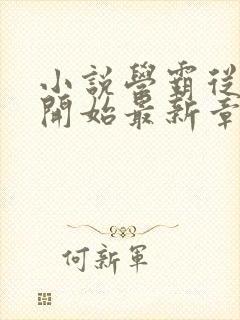 小說學霸從
開始最新章
何新軍